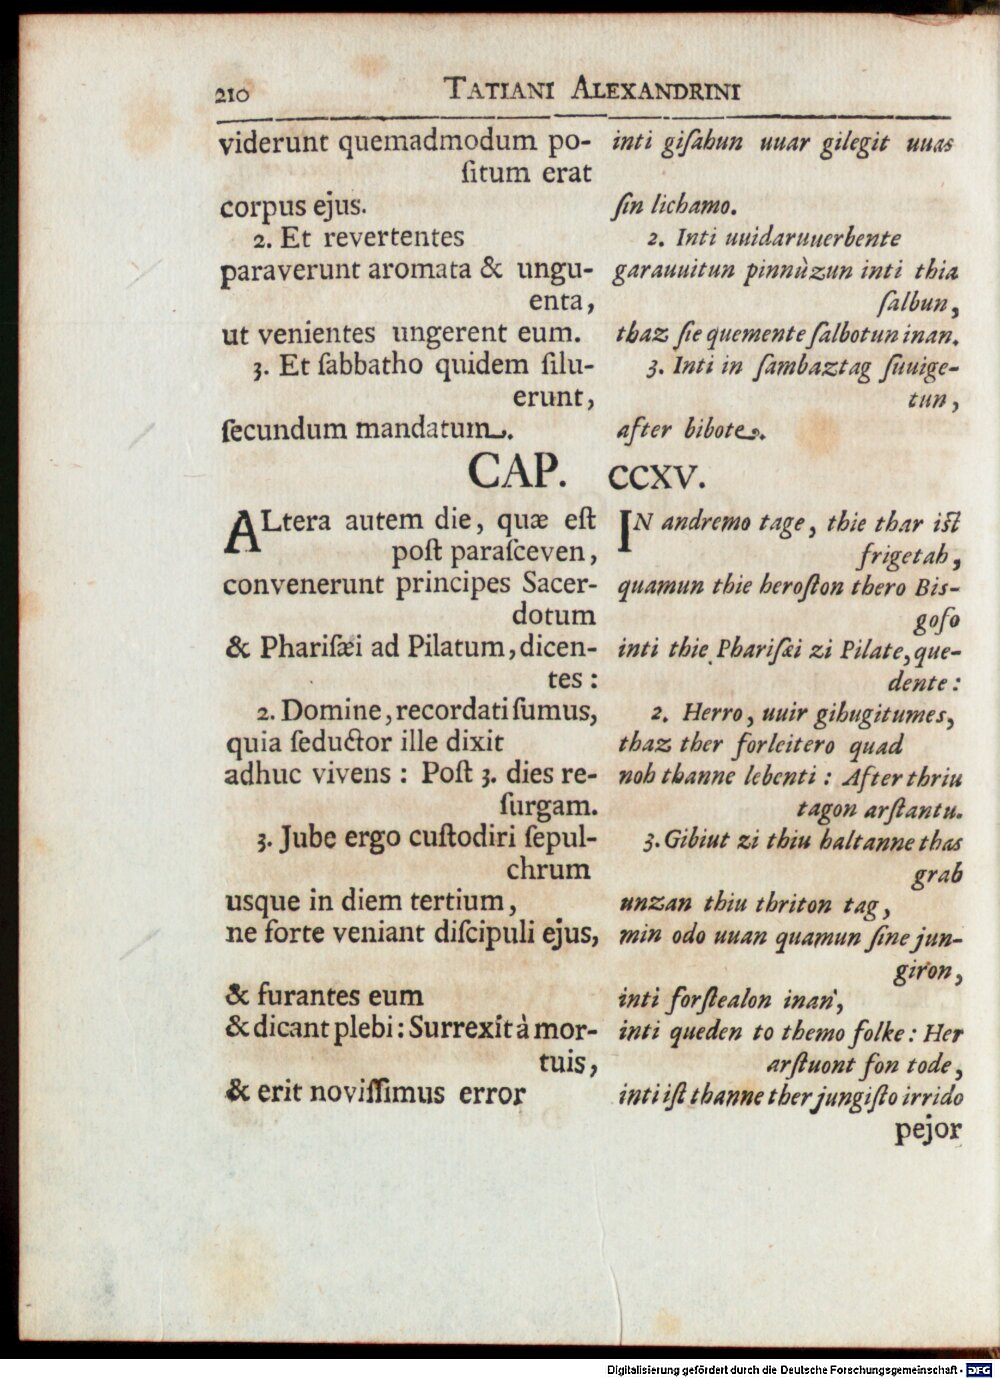 210
TATIANI ALEXANDRINI
viderunt quemadmodum po-
ſitum erat
corpus ejus.
2. Et revertentes
paraverunt aromata & ungu-
enta,
ut venientes ungerent eum.
3. Et ſabbatho quidem ſilu-
erunt,
ſecundum mandatum.
inti giſahun uuar gilegit uuas
ſin lichamo.
2. Inti uuidaruuerbente
garauuitun pinnùzun inti thia
ſalbun,
thaz ſie quemente ſalbotun inan.
3. Inti in ſambaztag ſuuige-
tun,
after bibote.
CAP. CCXV.
ALtera autem die, quæ eſt
poſt paraſceven,
convenerunt principes Sacer-
dotum
& Phariſæi ad Pilatum, dicen-
tes:
2. Domine, recordati ſumus,
quia ſeductor ille dixit
adhuc vivens: Poſt 3. dies re-
ſurgam.
3. Jube ergo cuſtodiri ſepul-
chrum
usque in diem tertium,
ne forte veniant diſcipuli ejus,
& furantes eum
& dicant plebi: Surrexit à mor-
tuis,
& erit noviſſimus error
IN andremo tage, thie thar iſt
frigetah,
quamun thie heroſton thero Biſ-
gofo
inti thie Phariſæi zi Pilate, que-
dente:
2. Herro, uuir gihugitumes,
thaz ther forleitero quad
noh thanne lebenti: After thriu
tagon arſtantu.
3. Gibiut zi thiu haltanne thas
grab
unzan thiu thriton tag,
min odo uuan quamun ſine jun-
giron,
inti forſtealon inan,
inti queden to themo folke: Her
arſtuont fon tode,
inti iſt thanne ther jungiſto irrido
pejor
Digitalisierung gefördert durch die Deutsche Forschungsgemeinschaft - DFG